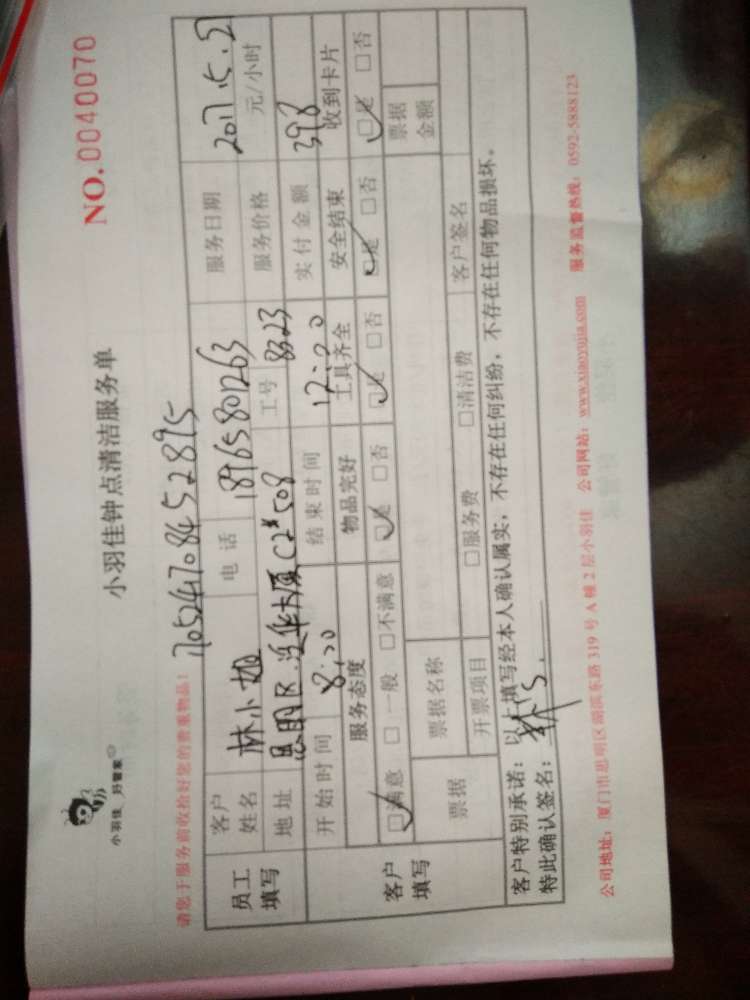 小羽佳 好管家
小羽佳钟点清洁服务单
NO.0040070
请您于服务前收拾好您的贵重物品!
170524708452895
员工填写
客户姓名 林小姐 电话 18965801263 服务日期 2017.5.27
地址 思明区 莲华大厦C2#508 工号 8323 服务价格 元/小时
开始时间 8:00 结束时间 12:00 实付金额 398
客户填写
服务态度 物品完好 工具齐全 安全结束 收到卡片
□满意 □一般 □不满意 □是 □否 □是 □否 □是 □否 □是 □否
票据 票据名称 票据金额
开票项目 □服务费 □清洁费 客户签名
客户特别承诺:以上填写经本人确认属实,不存在任何纠纷,不存在任何物品损坏。
特此确认签名:
公司地址:厦门市思明区湖滨东路319号A幢2层小羽佳 公司网站:www.xiaoyujia.com 服务监督热线:0592-5888123